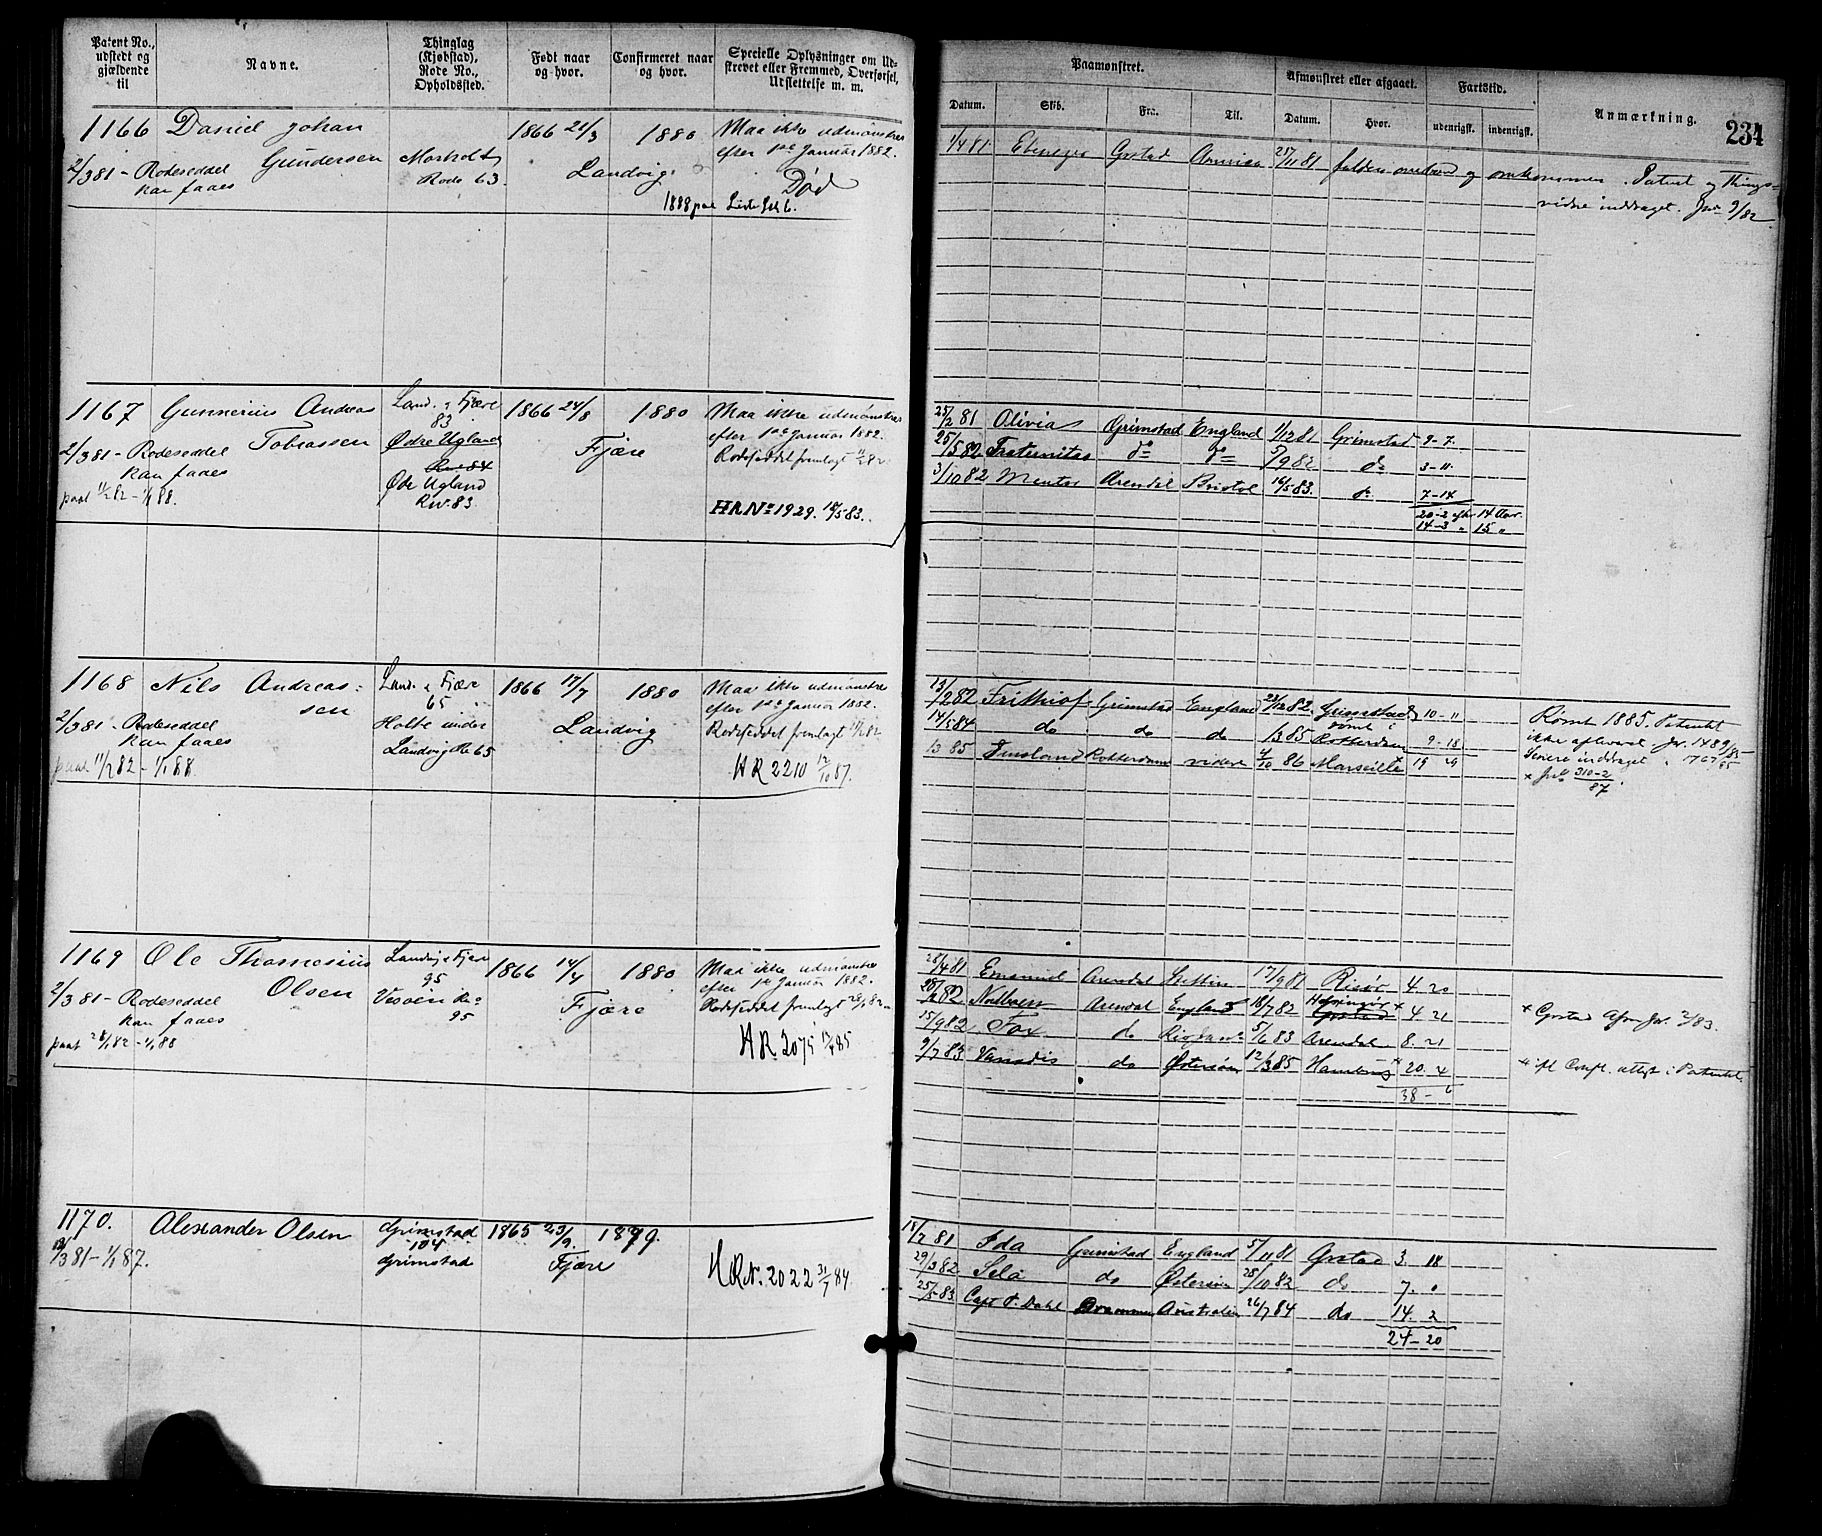 Patent No., udstedt og gjældende til
Navne.
Thinglag (Kjøbstad), Rode No., Opholdssted.
Født naar og hvor.
Confirmeret naar og hvor.
Specielle Oplysninger om Udskrevet eller Fremmed, Overførsel, Udslettelse m. m.
Paamønstret.
Afmønstret eller afgaaet.
Fartstid.
Anmærkning.
234
Datum.
Skib.
Fra.
Til.
Datum.
Hvor.
udenrigsk.
indenrigsk.
1166 Daniel Johan Gundersen
2/3 81 - Rodeseddel kan faaes
Morholt Rode 63
1866 21/3
1880
Landvig
Maa ikke udmønstres efter 1ste Januar 1882.
Død
1888 paa Liste
1/4 81 Ebenezer Grstad 25/11 81 falden overbord og omkommen. Patent og Things-
vidne inddraget. Jr. 9/82
1167 Gunnerius Andreas Tobiassen
2/3 81 - Rodeseddel kan faaes
paat 11/2 82 - 1/1 88.
Land. & Fjære 83
Ødre Ugland
Øde Ugland
Rv. 83
1866 24/8
1880
Fjære
Maa ikke udmønstres efter 1ste Januar 1882.
Rodeseddel fremlagt 11/2 82
HR No 1929. 18/5 83.
25/2 81 Olivia Grimstad England 1/12 81 Grimstad 9-7
25/5 82 Fraternitas do do 5/9 82 do 3-11
3/10 82 Mentor Arendal Bristol 16/5 83 do 7-14
20-2 efter 14 Aar.
14-3 " 15 "
1168 Nils Andreassen
2/3 81 - Rodeseddel kan faaes
paat 11/2 82 - 1/1 88.
Land. & Fjære 65
Holte under Landvig Re 65
1866 17/7
1880
Landvig
Maa ikke udmønstres efter 1ste Januar 1882.
Rodeseddel fremlagt 11/2 82
HR 2210 12/10 87.
13/2 82 Frithiof Grimstad England 23/12 82 Grimstad 10-11
14/5 84 do do do 1 3 85 rømt i Rotterdam 9-18
1 3 85 Rotterdam videre 4/10 86 Marseille 19 29
Rømt 1885. Patentet
ikke afleveret Jr. 1489/85
Senere inddraget " 1767/85
x Jr. 310-2/87
1169 Ole Thomesius Olsen
2/3 81 - Rodeseddel kan faaes
paat 28/1 82 - 1/1 88
Landvig & Fjære 95
Vesøen Re 95
1866 14/4
1880
Fjære
Maa ikke udmønstres efter 1ste Januar 1882.
Rodeseddel fremlagt 28/1 82
HR 2075 17/4 85
28/4 81 Emanuel Arendal Stettin 17/9 81 Risør 4. 20
28/2 82 Arendal England 18/7 82 Helsingør x 4. 21
15/9 82 Fox do 5/6 83 Arendal 8. 21
9/7 83 Vanadis do Østersøen 12/3 85 Hamburg x 20. 4
38 - 6
x Grstad Afm. Jr. 2/83.
x fl Consl. attest i Patentet.
1170. Alexander Olsen
12/3 81 - 1/1 87.
Grimstad 104
Grimstad
1865 23/9
1879.
Fjære
HR No. 2022 31/7 84.
18/7 81 Ida Grimstad England 5/11 81 Grstad 3. 18
29/3 82 Sela do Østersøen 28/10 82 do 7. "
25/5 83 Capt. P. Dahl Drammen Australien 26/7 84 do 14. 2
24-20